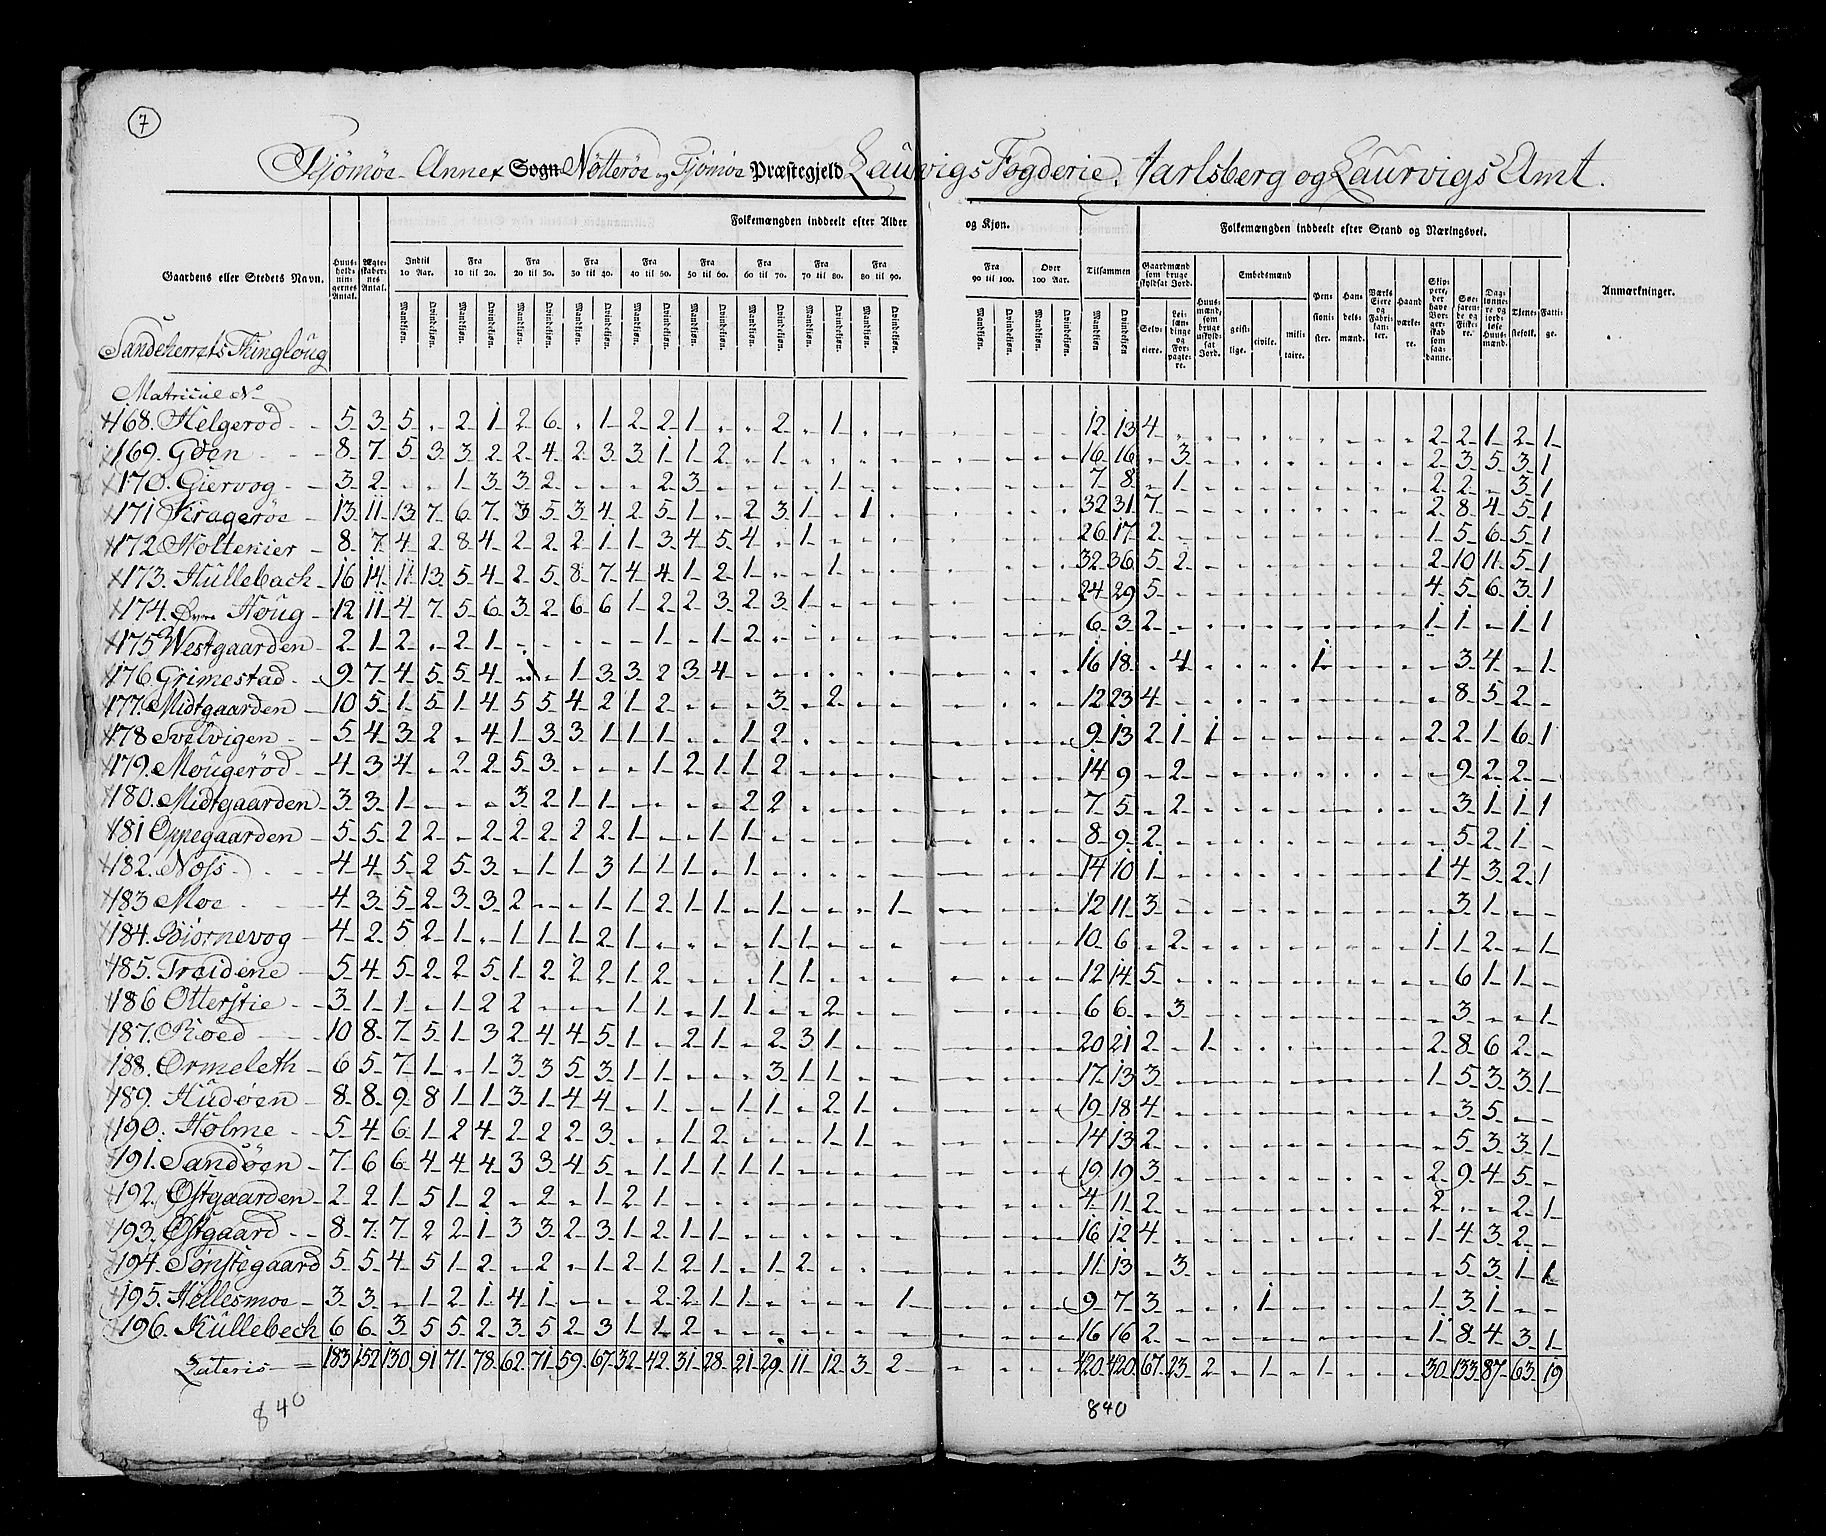 7
Tjömöe Annex Sogn Nötteröe og Tjömöe Præstegjeld Laurvigs Fogderie. Jarlsberg og Laurvigs Amt.
Gaardens eller Stedets Navn.
Huusholdningernes Antal.
Ægteskabernes Antal.
Folkemængden inddeelt efter Alder og Kjøn.
Indtil 10 Aar. Fra 10 til 20. Fra 20 til 30. Fra 30 til 40. Fra 40 til 50. Fra 50 til 60. Fra 60 til 70. Fra 70 til 80. Fra 80 til 90. Fra 90 til 100. Over 100 Aar. Tilsammen
Mandkiøn. Qvindekiøn.
Folkemængden inddeelt efter Stand og Næringsvei.
Gaardmænd som bruge skyldsat Jord.
Selveiere.
Leilændinge og Forpagtere.
Huusmænd, som bruge uskyldsat Jord.
Embedsmænd
geistlige. civile. militaire.
Pensionister.
Handelsmænd.
Værks Eiere og Fabrikanter.
Haandværkere.
Skippere, der have Borgerskab som saadanne.
Søefarende og Fiskere.
Daglønnere og jordløse Huusmænd.
Tjenestefolk.
Fattige.
Anmærkninger.
Sandeherrets Thinglaug
Matricul No
168. Helgerod - 5 3 5 - 2 1 2 6 - 1 2 2 1 - - 2 - 1 - - - - - - 12 13 4 - - - - - - - - - 2 2 1 2 1
169. Goen - 8 7 5 3 3 2 2 4 2 3 3 1 1 2 - 1 - - - - - - - - 16 16 - 3 - - - - - - - - 2 3 5 3 1
170. Giervog - 3 2 - - 1 3 3 2 - - - 2 3 - - - - 1 - - - - - - 7 8 - 1 - - - - - - - - 2 2 - 3 1
171 Krageröe - 13 11 13 7 6 7 3 5 3 4 2 5 1 - 2 3 1 - 1 - - - - - 32 31 7 - - - - - - - - - 2 8 4 5 1
172 Holtenier - 8 7 4 2 8 4 2 2 2 1 1 3 4 5 4 - 1 - - - - - - - 26 17 2 - - - - - - - - - 1 5 6 5 1
173. Hullebach - 16 14 11 13 5 4 2 5 8 7 4 4 1 2 1 - - 1 - - - - - - 32 36 5 2 - - - - - - - - 2 10 11 5 1
174. Øvre Houg - 12 11 4 7 5 6 3 2 6 6 1 2 2 3 2 3 1 - - - - - - - 24 29 5 - - - - - - - - - 4 5 6 3 1
175 Westgaarden - 2 1 2 - 2 1 - - - - - 1 - 1 2 - - - - - - - - - 6 3 2 - - - - - - - - - 1 1 - 1 1
176. Grimestad - 9 7 4 5 5 4 - - 1 3 3 2 3 4 - - - - - - - - - - 16 18 - 4 - - - - 1 - - - - 3 4 - 1
177. Midtgaarden - 10 5 1 5 1 4 5 5 4 2 1 2 - - - 3 - 2 - - - - - - 12 23 4 - - - - - - - - - - 8 5 2 -
178 Svelvigen - 5 4 3 2 - 4 1 3 3 1 1 1 - - 1 2 - - - - - - - - 9 13 2 1 1 - - - - - - - 2 2 1 6 1
179. Mougeröd - 4 3 4 - 2 2 5 3 - - - 1 2 1 1 2 - - - - - - - - 14 9 - 2 - - - - - - - - - 9 2 2 -
180. Midtgaarden - 3 3 1 - - - 3 2 1 1 - - - - 2 2 - - - - - - - - 7 5 - 2 - - - - - - - - - 3 1 1 1
181 Oppegaarden - 5 5 2 2 - 2 2 2 2 2 1 - - 1 1 - - - - - - - - - 8 9 2 - - - - - - - - - - 5 2 1 -
182. Nöss - 4 4 5 2 5 3 - 1 1 3 1 1 1 - 1 - - - - - - - - - 14 10 1 - - - - - - - - - 1 4 3 2 1
183 Moe - 4 3 5 2 3 3 2 - - 1 1 2 1 1 - 1 - - - 1 - - - - 12 11 3 - - - - - - - - - - 3 1 - -
184. Biörnevog - 4 2 5 2 1 - 1 1 1 2 1 - - - - 1 1 1 - - - - - - 10 6 - 2 - - - - - - - - 1 1 2 - 1
185. Treidene - 5 4 5 2 2 5 1 2 2 2 1 2 - - - 1 1 - - - - - - - 12 14 5 - - - - - - - - - - 6 1 1 -
186 Otterstie - 3 1 1 - 1 2 2 - - - 1 1 - 1 1 - - 2 - - - - - - 6 6 - 3 - - - - - - - - - 3 - - 1
187. Roed - 10 8 7 5 1 3 2 4 4 5 1 - 2 1 - 2 3 1 - - - - - - 20 21 2 - 1 - - - - - - - 2 8 6 2 -
188. Ormeleth - 6 5 7 1 - 1 3 3 5 3 1 1 - - - 3 1 1 - - - - - - 17 13 3 - - - - - - - - - 1 5 3 3 1
189. Hudöen - 8 8 9 8 1 1 3 1 4 4 - 1 - - 1 1 - 2 1 - - - - - 19 18 4 - - - - - - - - - - 3 5 - -
190. Holme - 5 4 6 1 2 4 2 2 2 3 - - 1 2 - - 1 1 - - - - - 14 13 2 - - - - - - - - - - 5 3 3 1
191. Sandöen - 7 6 6 4 4 4 3 3 4 5 - 1 1 1 1 1 - - - - - - - - 19 19 3 - - - - - - - - - 2 9 4 5 -
192. Östgaarden - 2 2 1 5 1 2 - 2 - 1 2 1 - - - - - - - - - - - - 4 11 2 - - - - - - - - - 2 - - 2 1
193. Östgaard - 8 7 7 2 2 1 3 3 2 3 1 2 1 1 - - - - - - - - - - 16 12 4 - - - - - - - - - 1 4 3 2 -
194. Sönstegaard 5 5 4 5 1 2 - 2 - 1 2 1 2 1 - 1 2 - - - - - - - 11 13 - 3 - - - - - - - - - 5 3 1 1
195. Hellesmoe - 3 3 - 1 2 1 4 1 - - - 2 2 1 1 - - - - 1 - - - - 9 7 3 - - - 1 - - - - - 1 3 1 - -
196. Kullebech 6 6 3 5 5 2 3 5 2 3 1 1 2 - - - - - - - - - - - 16 16 2 - - - - - - - - - 1 8 4 3 1
Lateris = 183 152 130 91 71 78 62 71 59 67 32 42 31 28 21 29 11 12 3 2 - - - - 420 420 67 23 2 - 1 - 1 - - - 30 133 87 63 19
840
840